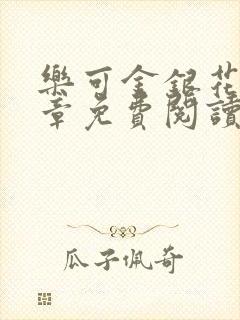 樂可金銀花
章免費閱讀
瓜子佩奇